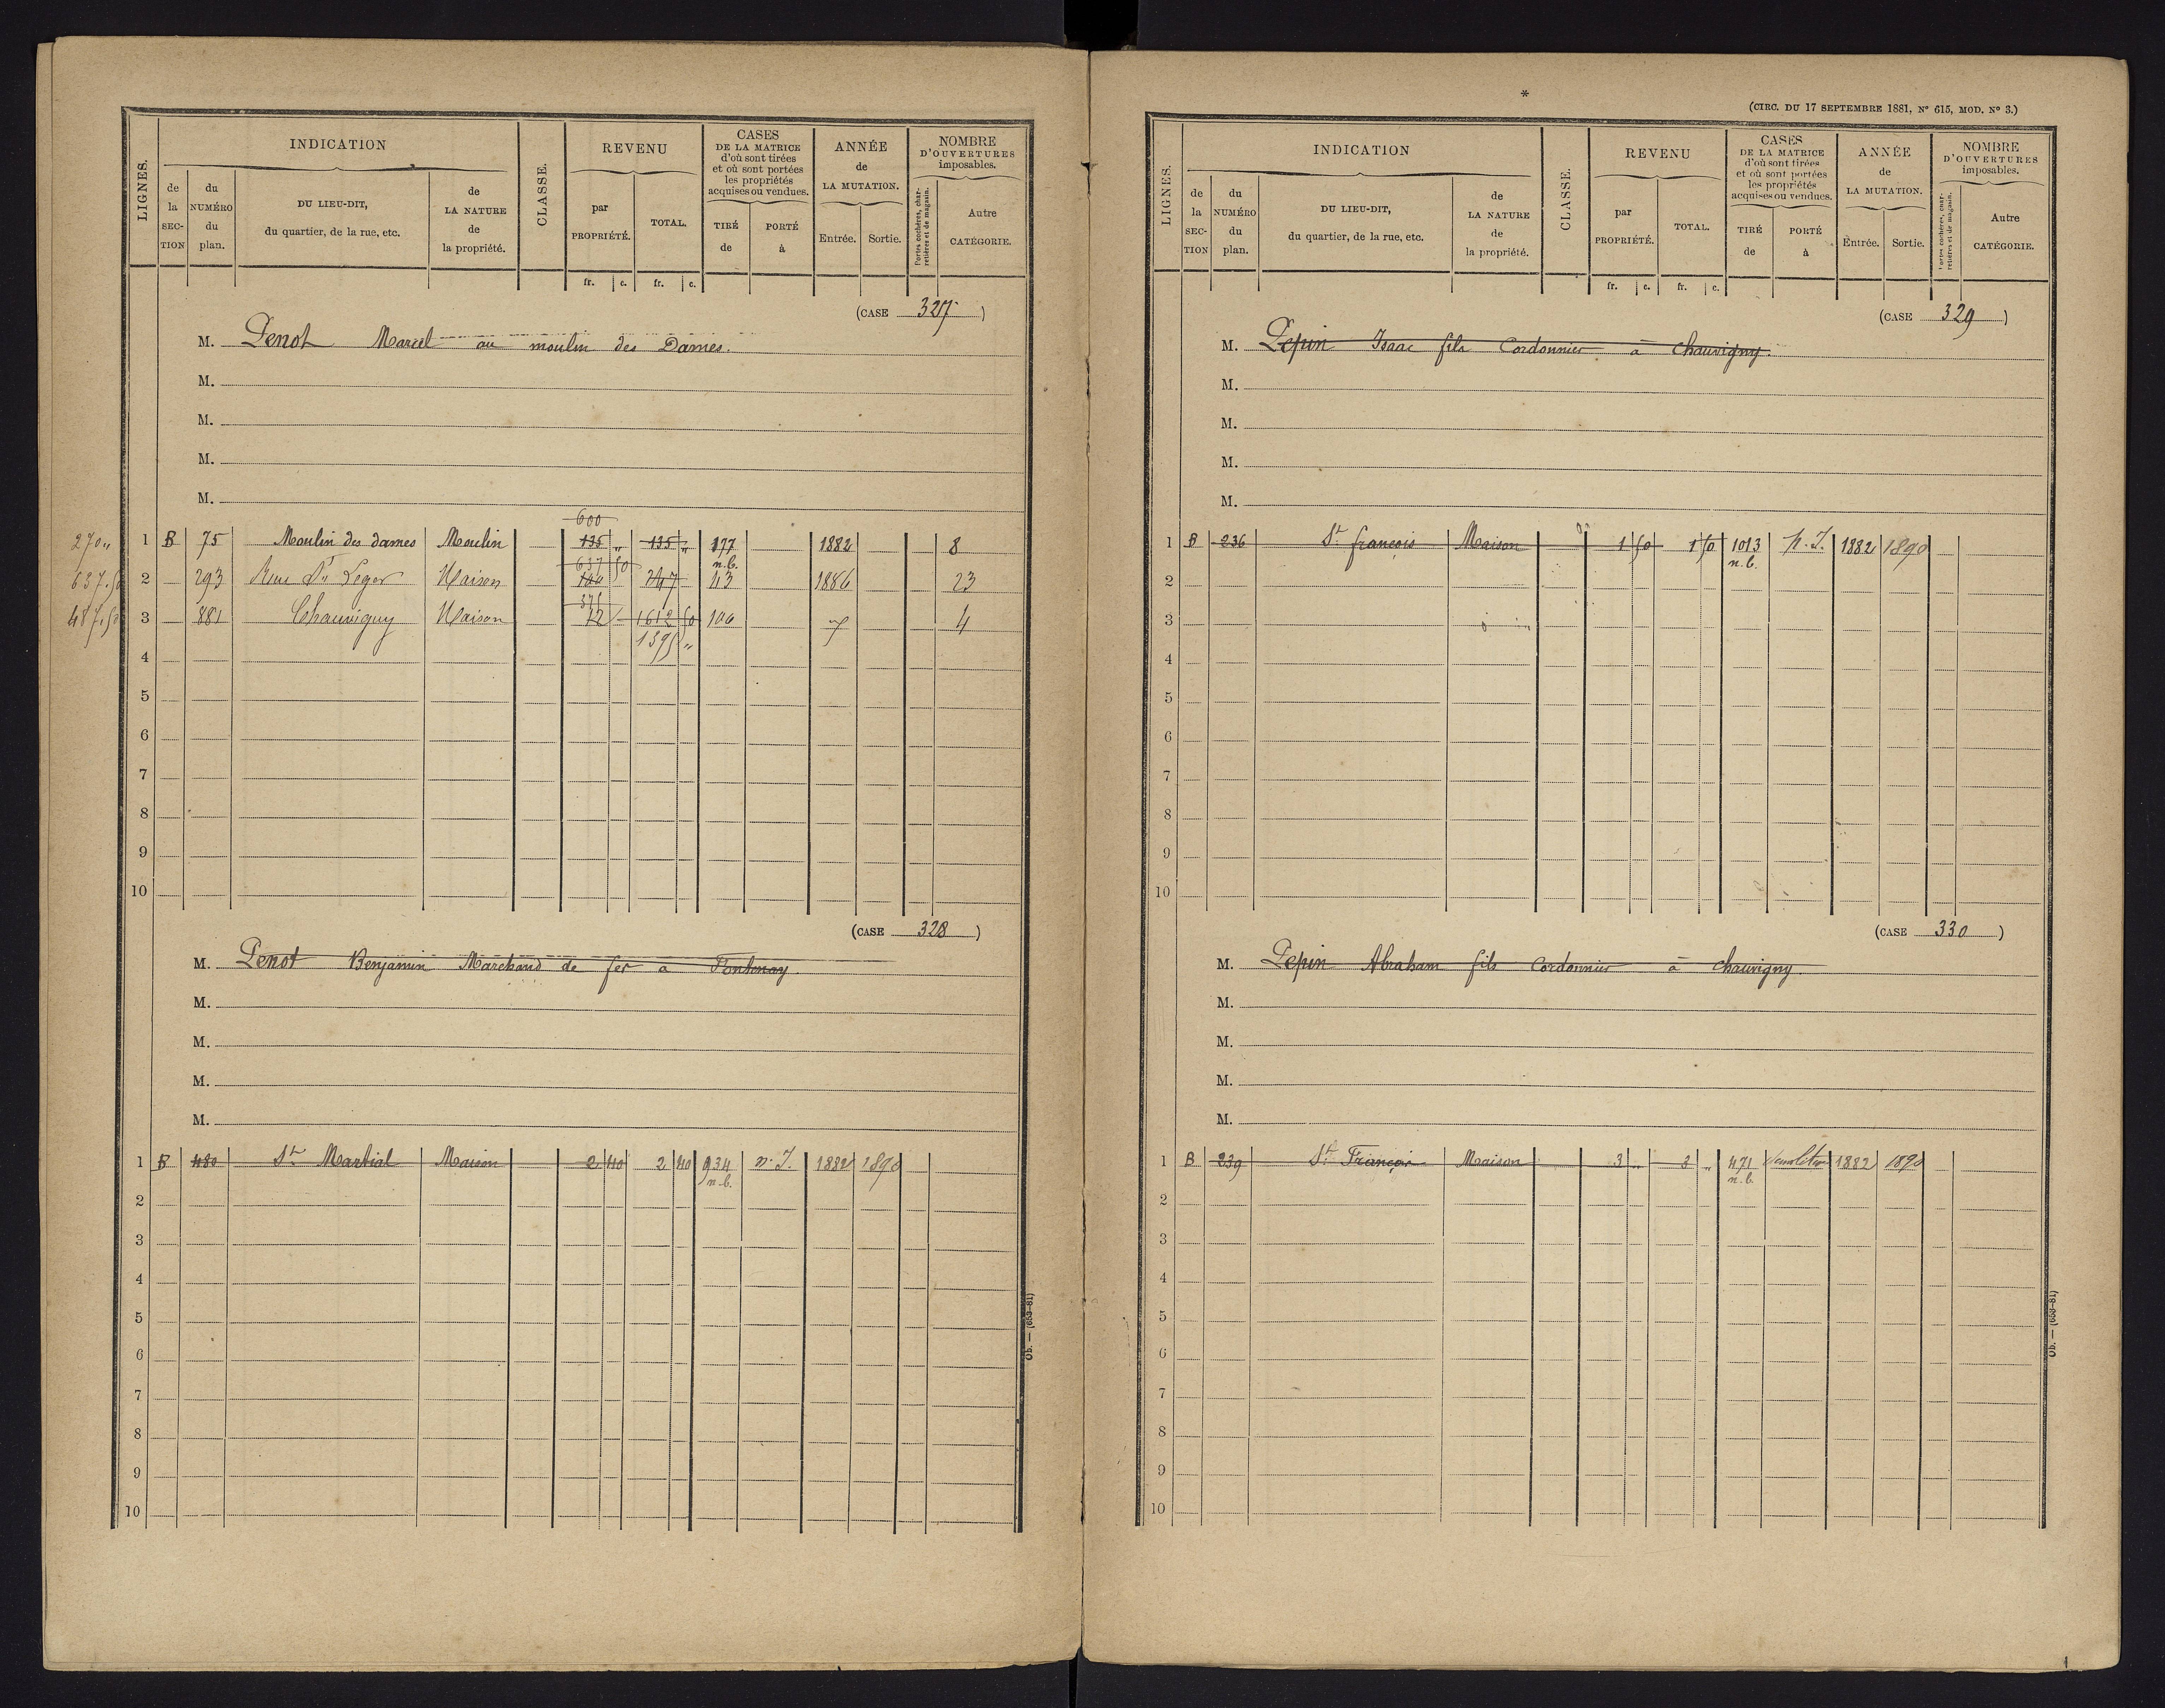 LIGNES.
INDICATION
de la SECTION
du NUMÉRO du plan.
DU LIEU-DIT, du quartier, de la rue, etc.
de LA NATURE de la propriété.
CLASSE.
REVENU
par PROPRIÉTÉ.
TOTAL.
fr. c. fr. c.
CASES DE LA MATRICE d'où sont tirées et où sont portées les propriétés acquises ou vendues.
TIRÉ de
PORTÉ à
ANNÉE de LA MUTATION.
Entrée. Sortie.
NOMBRE D'OUVERTURES imposables.
Portes cochères, charretières et de magasin.
Autre CATÉGORIE.
(CASE 327)
M. Penot Marcel au moulin des Dames.
M.
M.
M.
M.
600
270 " 1 B 75 Moulin des dames Moulin 135 " 135 " 177 1882 8
637 50 n.b.
637.50 2 293 Rue St Leger Maison 247 43 1886 23
375
487.50 3 881 Chauvigny Maison 12 1612 50 106 4
4 1395 "
5
6
7
8
9
10
(CASE 328)
M. Penot Benjamin Marchand de fer a Fontenay
M.
M.
M.
M.
1 B 480 St Martial Maison 2 40 2 40 934 n.I. 1882 1890
n.b.
2
3
4
5
6
7
8
9
10
Ob. — (653-81)
*
(CIRC. DU 17 SEPTEMBRE 1881, No 615, MOD. No 3.)
LIGNES.
INDICATION
de la SECTION
du NUMÉRO du plan.
DU LIEU-DIT, du quartier, de la rue, etc.
de LA NATURE de la propriété.
CLASSE.
REVENU
par PROPRIÉTÉ.
TOTAL.
fr. c. fr. c.
CASES DE LA MATRICE d'où sont tirées et où sont portées les propriétés acquises ou vendues.
TIRÉ de
PORTÉ à
ANNÉE de LA MUTATION.
Entrée. Sortie.
NOMBRE D'OUVERTURES imposables.
Portes cochères, charretières et de magasin.
Autre CATÉGORIE.
(CASE 329)
M. Pepin Isaac fils Cordonnier à Chauvigny.
M.
M.
M.
M.
1 B 236 St françois Maison 1 50 1 50 1013 n.I. 1882 1890
n.b.
2
3
4
5
6
7
8
9
10
(CASE 330)
M. Pepin Abraham fils Cordonnier à chauvigny.
M.
M.
M.
M.
1 B 239 St François Maison 3 " 3 " 471 1882 1890
n.b.
2
3
4
5
6
7
8
9
10
Ob. — (653-81)